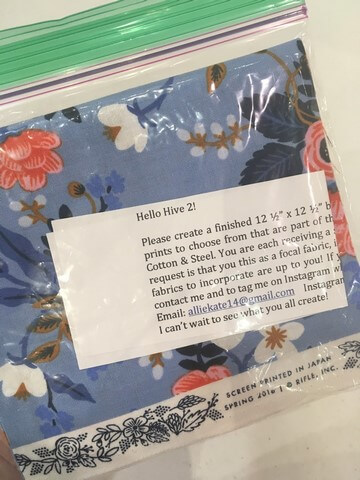 Hello Hive 2!
Please create a finished 12 ½” x 12 ½”
prints to choose from that are part of
Cotton & Steel. You are each receiving a
request is that you this as a focal fabric,
fabrics to incorporate are up to you! If
contact me and to tag me on Instagram
Email: alliekate14@gmail.com Instagram
I can't wait to see what you all create!
SCREEN PRINTED IN JAPAN
SPRING 2016 | © RIFLE, INC.